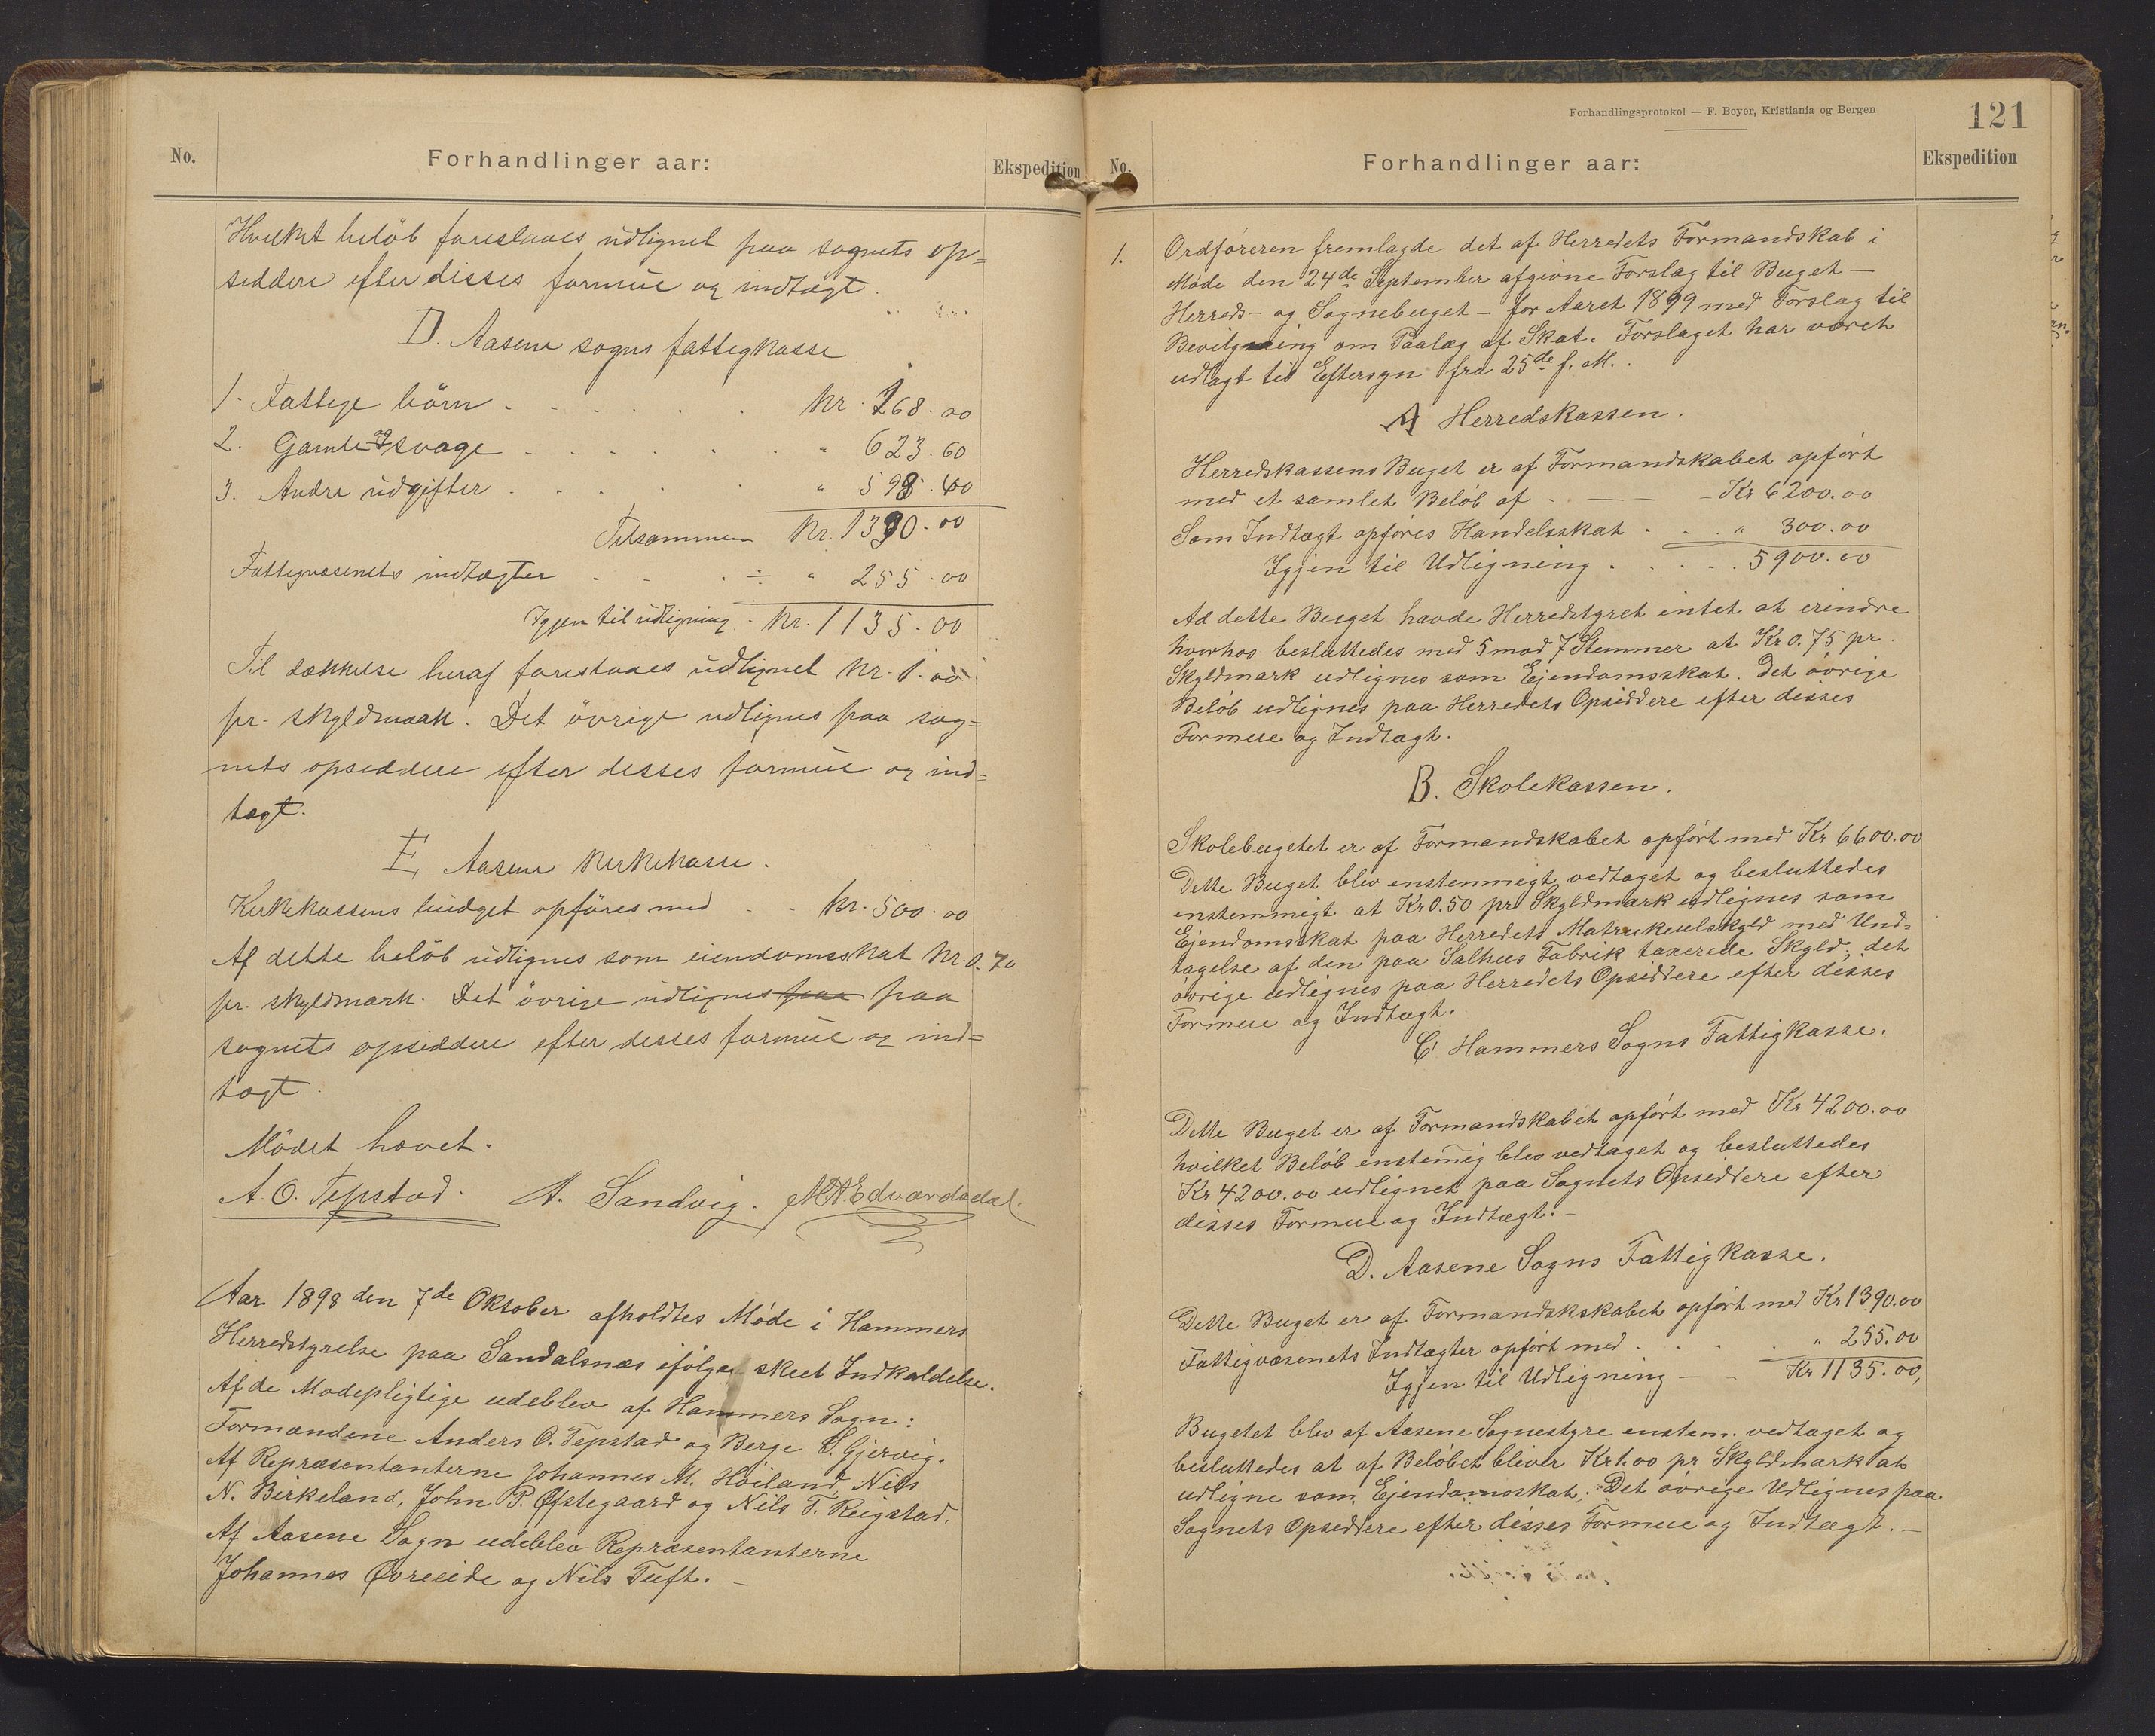 No. Forhandlinger aar: Ekspedition
Hvilket beløb foreslaaes udlignet paa sognets op=
siddere efter disses formue og indtægt.
D. Aasene sogns fattigkasse.
1. Fattige börn . . . . . Kr. 168.00
2. Gamle og svage . . . . . " 623.60
3. Andre udgifter . . . . . " 598.40
Tilsammen Kr. 1390.00
Fattigvæsenets indtægter . . . ÷ " 255.00
Igjen til udligning . Kr. 1135.00
Til dækkelse heraf foreslaaes udlignet Kr. 1.00
pr. skyldmark. Det övrige udlignes paa sog=
nets opsiddere efter disses formue og ind=
tægt.
E, Aasene Kirkekasse.
Kirkekassens budget opföres med . . Kr. 500.00
Af dette belöb udlignes som eiendomsskat Kr. 0.70
pr. skyldmark. Det övrige udlignes paa paa
sognets opsiddere efter disses formue og ind=
tægt.
Mödet hævet.
A. O. Tepstad. A. Sandvig. M A Edvardsdal.
Aar 1898 den 7de Oktober afholdtes Møde i Hammers
Herredstyrelse paa Sandalsnæs ifølge skeet Indkaldelse.
Af de Mødepligtige udeblev af Hammers Sogn:
Formændene Anders O. Tepstad og Berge S. Gjervig.
Af Repræsentanterne Johannes M. Høiland, Nils
N. Birkeland, John P. Øfstegaard og Nils T. Reigstad.
Af Aasene Sogn udeblev Repræsentanterne
Johannes Øvreeide og Nils Tuft. —
Forhandlingsprotokol — F. Beyer, Kristiania og Bergen
121
No. Forhandlinger aar: Ekspedition
1. Ordføreren fremlagde det af Herredets Formandskab i
Møde den 24de September afgivne Forslag til Buget —
Herreds- og Sognebuget — for Aaret 1899 med Forslag til
Bevilgning om Paalæg af Skat. Forslaget har været
udlagt til Eftersyn fra 25de f. M..
A Herredskassen.
Herredskassens Buget er af Formandskabet opført
med et samlet Beløb af - — — - Kr 6200.00
Som Indtægt opføres Handelsskat . . . " 300.00
Igjen til Udligning . . . . . 5900.00
Ad dette Buget havde Herredstyret intet at erindre
hvorhos besluttedes med 5 mod 7 Stemmer at Kr 0.75 pr.
Skyldmark udlignes som Ejendomsskat. Det øvrige
Beløb udlignes paa Herredets Opsiddere efter disses
Formue og Indtægt.
B. Skolekassen.
Skolebugetet er af Formandskabet opført med Kr 6600.00
Dette Buget blev enstemmigt vedtaget og besluttedes
enstemmigt at Kr 0.50 pr Skyldmark udlignes som
Ejendomsskat paa Herredets Matrukeulskyld med Und-
tagelse af den paa Salhus Fabrik taxerede Skyld; det
øvrige udlignes paa Herredets Opsiddere efter disses
Formue og Indtægt.
C. Hammers Sogns Fattigkasse.
Dette Buget er af Formandskabet opført med Kr 4200.00
hvilket Beløb enstemig blev vedtaget og besluttedes
Kr 4200.00 udlignet paa Sognets Opsiddere efter
disses Formue og Indtægt. —
D. Aasene Sogns Fattigkasse.
Dette Buget er af Formandskskabet opført med Kr 1390.00
Fattigvæsenets Indtægter opført med . . . . " 255.00
Igjen til Udligning — - Kr 1135.00,
Bugetet blev af Aasene Sognestyre enstem. vedtaget og
besluttedes at af Beløbet bliver Kr 1.00 pr Skyldmark at
udligne som Ejendomsskat; Det øvrige Udlignes paa
Sognets Opsiddere efter disses Formue og Indtægt. —